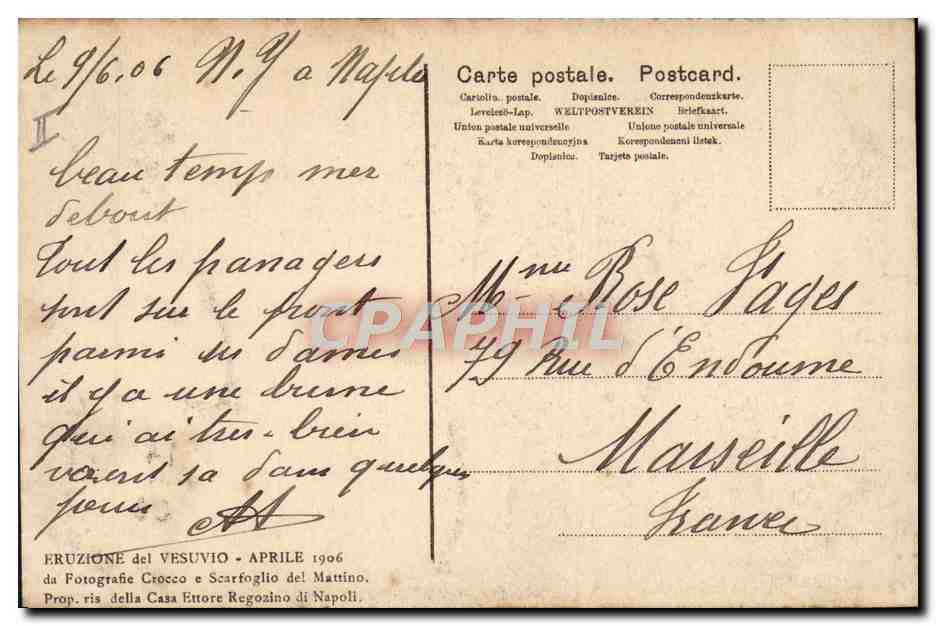 Le 9/6.06 N.Y a Naples
II
beau temps mer
debout
Tout les passagers
sont sur le pront
parmi les dames
il y a une brune
qui ai tres-bien
sa dans quelques
jours
Carte postale. Postcard.
Cartolin. postale. Dopisnice. Correspondenzkarte.
Levelező-Lap. WELTPOSTVEREIN Briefkaart.
Union postale universelle Unione postale universale
Karta korespondencyjna Korespondencni listek.
Dopisnica. Tarjeta postale.
Mme Rose Fages
79 Rue d'Endoume
Marseille
France
CPAPHIL
ERUZIONE del VESUVIO - APRILE 1906
da Fotografie Crocco e Scarfoglio del Mattino.
Prop. ris della Casa Ettore Regozino di Napoli.